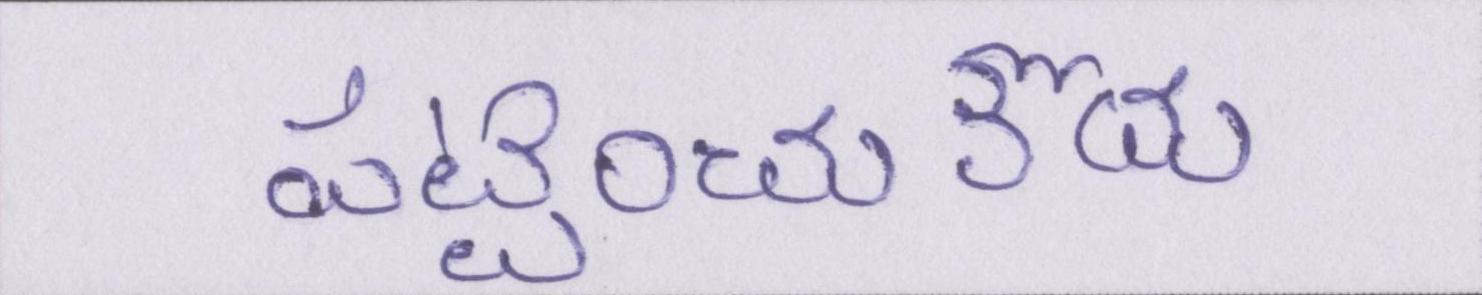 పట్టించుకోడు